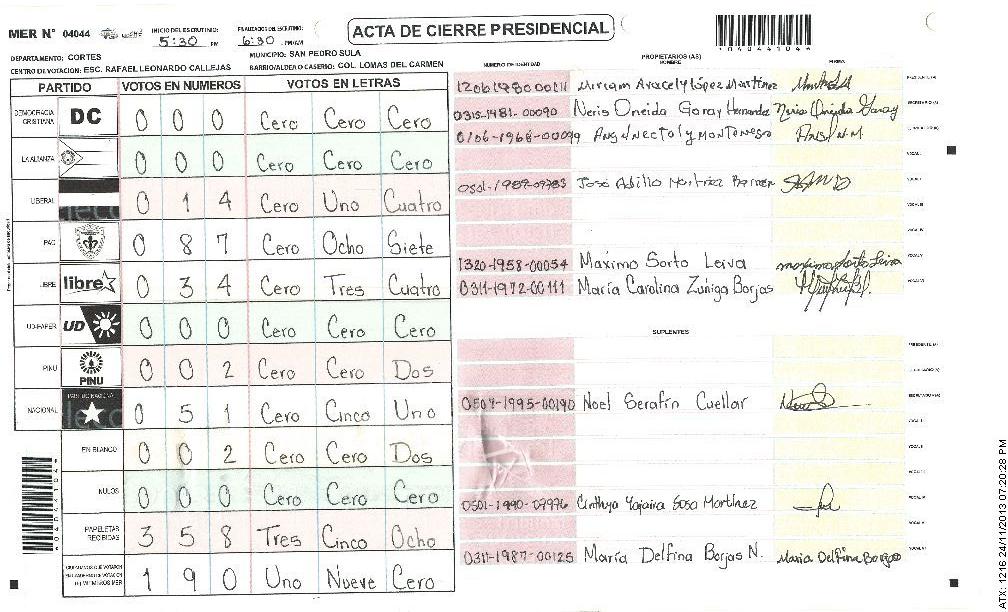 MER N° 04044
INICIO DEL ESCRUTINIO: 5:30 PM
FINALIZACION DEL ESCRUTINIO: 6:30 PM/AM
ACTA DE CIERRE PRESIDENCIAL
*04044104*
DEPARTAMENTO: CORTES
MUNICIPIO: SAN PEDRO SULA
CENTRO DE VOTACION: ESC. RAFAEL LEONARDO CALLEJAS
BARRIO/ALDEA O CASERIO: COL. LOMAS DEL CARMEN
PARTIDO VOTOS EN NUMEROS VOTOS EN LETRAS
DEMOCRACIA CRISTIANA DC 0 0 0 Cero Cero Cero
LA ALIANZA 0 0 0 Cero Cero Cero
LIBERAL 0 1 4 Cero Uno Cuatro
PAC 0 8 7 Cero Ocho Siete
LIBRE libre 0 3 4 Cero Tres Cuatro
UD-FAPER UD 0 0 0 Cero Cero Cero
PINU PINU 0 0 2 Cero Cero Dos
NACIONAL PARTIDO NACIONAL 0 5 1 Cero Cinco Uno
EN BLANCO 0 0 2 Cero Cero Dos
NULOS 0 0 0 Cero Cero Cero
PAPELETAS RECIBIDAS 3 5 8 Tres Cinco Ocho
CIUDADANOS QUE VOTARON 1 9 0 Uno Nueve Cero
PROPIETARIOS (AS)
NUMERO DE IDENTIDAD NOMBRE FIRMA
1206198000111 Miriam Aracely López Martínez PRESIDENTE (A)
0315-1481-00090 Neris Oneida Garay Hernandez Neris Oneida Garay SECRETARIO (A)
0106-1968-00099
VOCAL I
0501-1989-09783 José Adillo
1320-1958-00054 Máximo Sorto Leiva maximo sorto leiva
0311-1972-00111 María Carolina Zuniga Borjas
SUPLENTES
PRESIDENTE (A)
SECRETARIO (A)
0504-1995-00190 Noel Serafín Cuellar
0501-1990-07976 Cinthya Yajaira Sosa Martínez
0311-1987-00125 María Delfina Borjas N. Maria Delfina Borjas
ATX: 1216 24/11/2013 07:20:28 PM